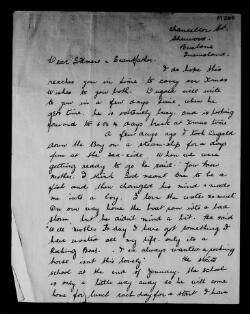 Chancellor St.
Sherwood.
Brisbane
Queensland.
Dear Steiners & Grandfather. I do hope this
reaches you in time to carry our Xmas
Wishes to you both. Dugald will write
to you in a few days time, when he
gets time he is extremely busy, and is looking
forward to 10 days break at Xmas time
A few days ago I took Dugald
down the Bay on a steam-ship for a days
fun at the sea side. When we were
getting ready to go he said "You know
Mother, I think God meant me to be a
fish and then changed his mind & made
me into a boy. I love the water so much
On our way home the boat ran into a bad
storm, but he didn't mind a bit. He said
"Well Mother To day I have got something I
have wanted all my life. only its a
Rocking Boat. I've always wanted a rocking
horse isn't this lovely" He starts
school at the end of January. The school
is only a little way away so he will come
home for lunch each day for a start. I have